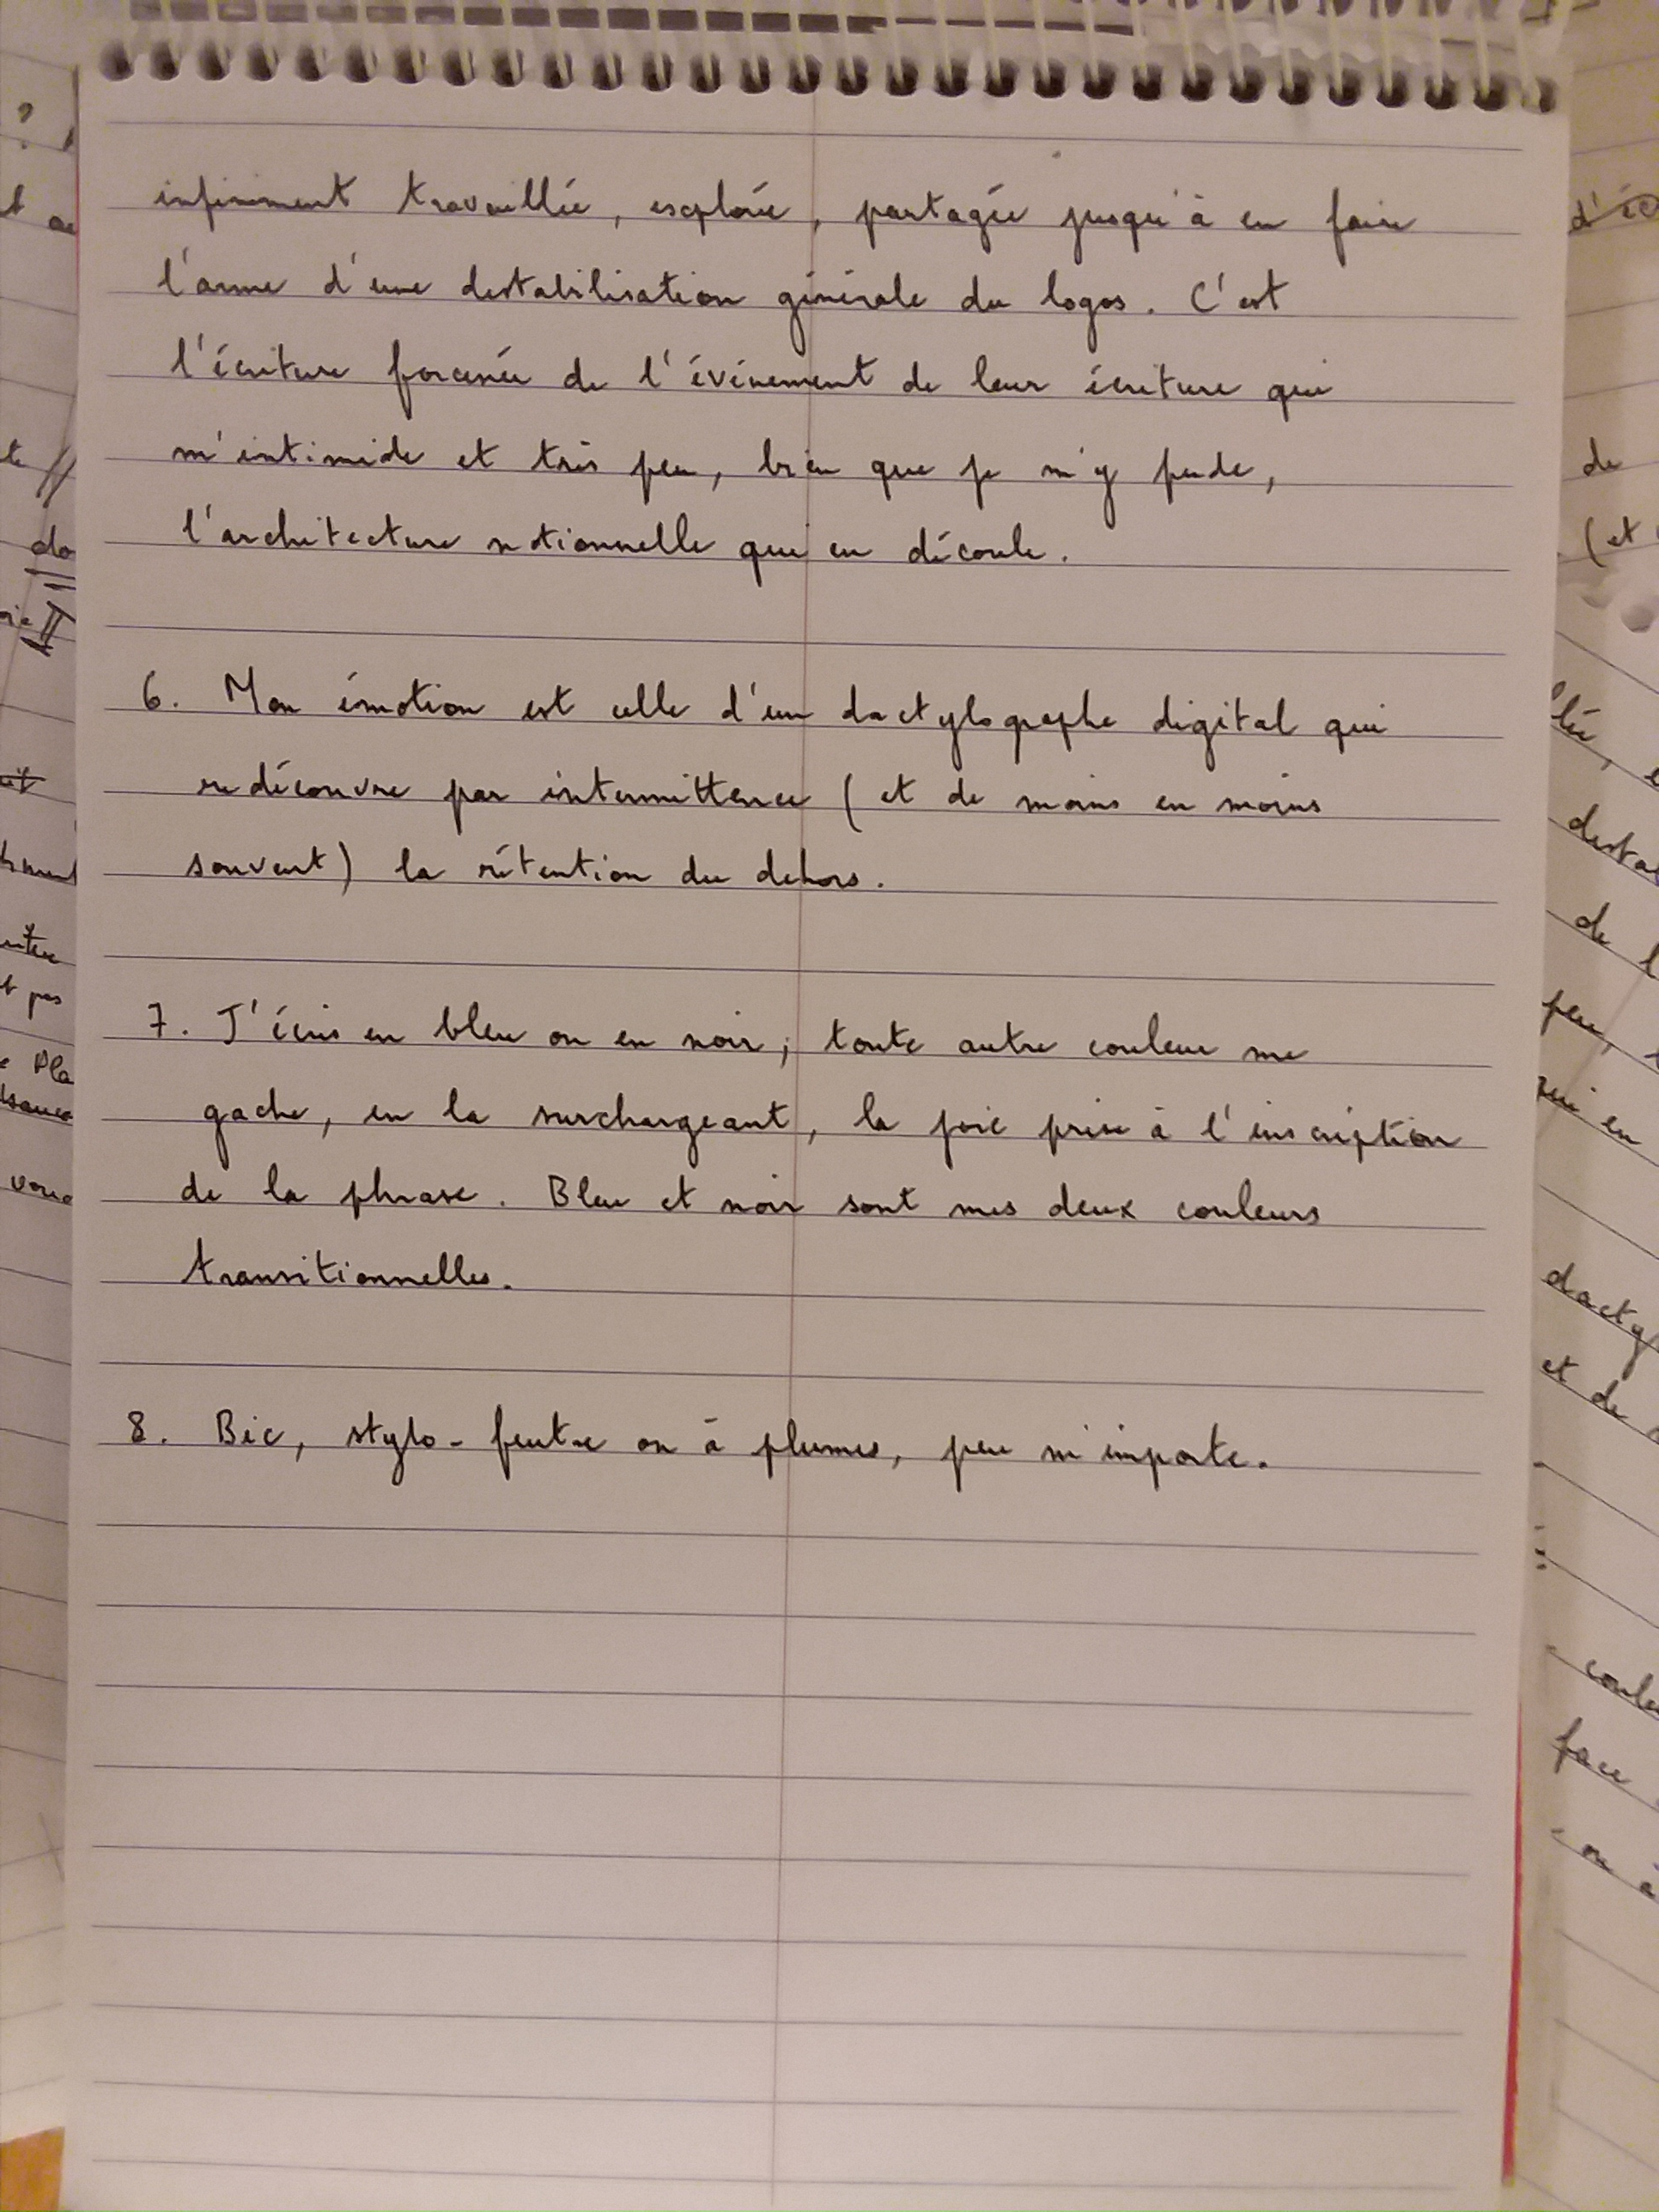 infiniment travaillée, explorée, partagée jusqu'à en faire
l'arme d'une destabilisation générale du logos. C'est
l'écriture forcenée de l'événement de leur écriture qui
m'intimide et très peu, bien que je m'y perde,
l'architecture notionnelle qui en découle.
6. Mon émotion est celle d'un dactylographe digital qui
redécouvre par intermittence (et de moins en moins
souvent) la rétention du dehors.
7. J'écris en bleu ou en noir; toute autre couleur me
gache, en la surchargeant, la joie prise à l'inscription
de la phrase. Bleu et noir sont mes deux couleurs
transitionnelles.
8. Bic, stylo-feutre ou à plumes, peu m'importe.
de
(et
desta
de l
peu,
qui en
dacty
et de
coule
face
ou à